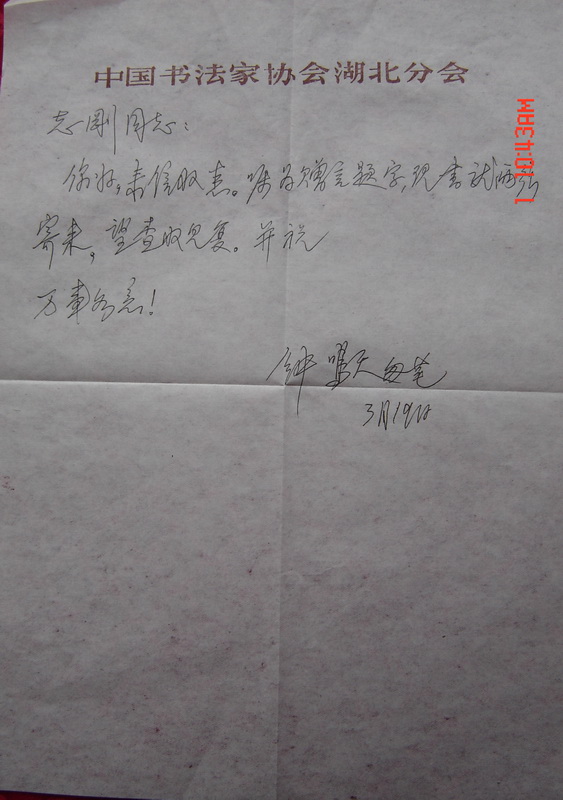 中国书法家协会湖北分会
志刚同志：
你好，来信收悉。嘱为赠言题字，现书就两张
寄来，望查收见复。并祝
万事如意！
钟鸣天 匆笔
3月19日
10:43AM